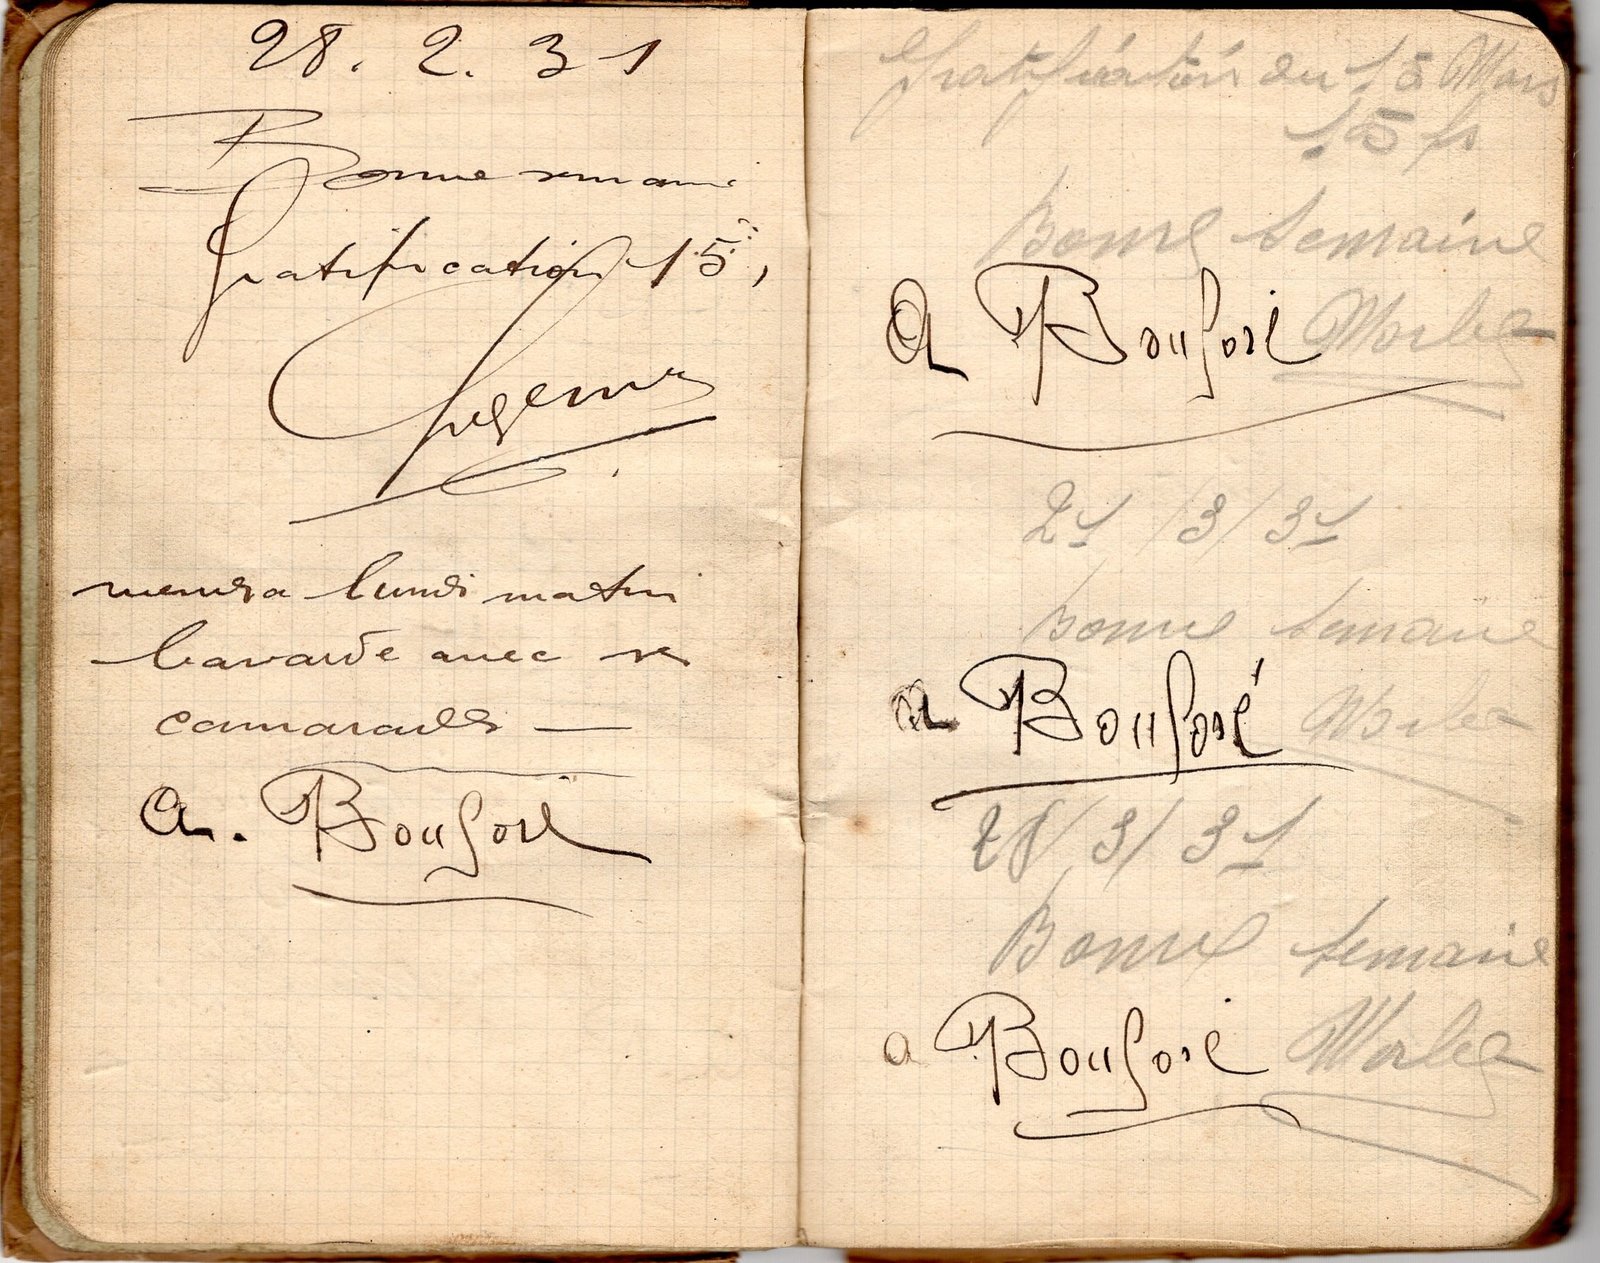 28. 2. 31
Bonne semaine
Gratification 15,
lundi matin
bavarde avec se
camarades —
A. Bouforé
Gratification du 15 Mars
15 fs
Bonne semaine
A Bouforé
21/3/31
Bonne semaine
A Bouforé
28/3/31
Bonne semaine
a Bouforé